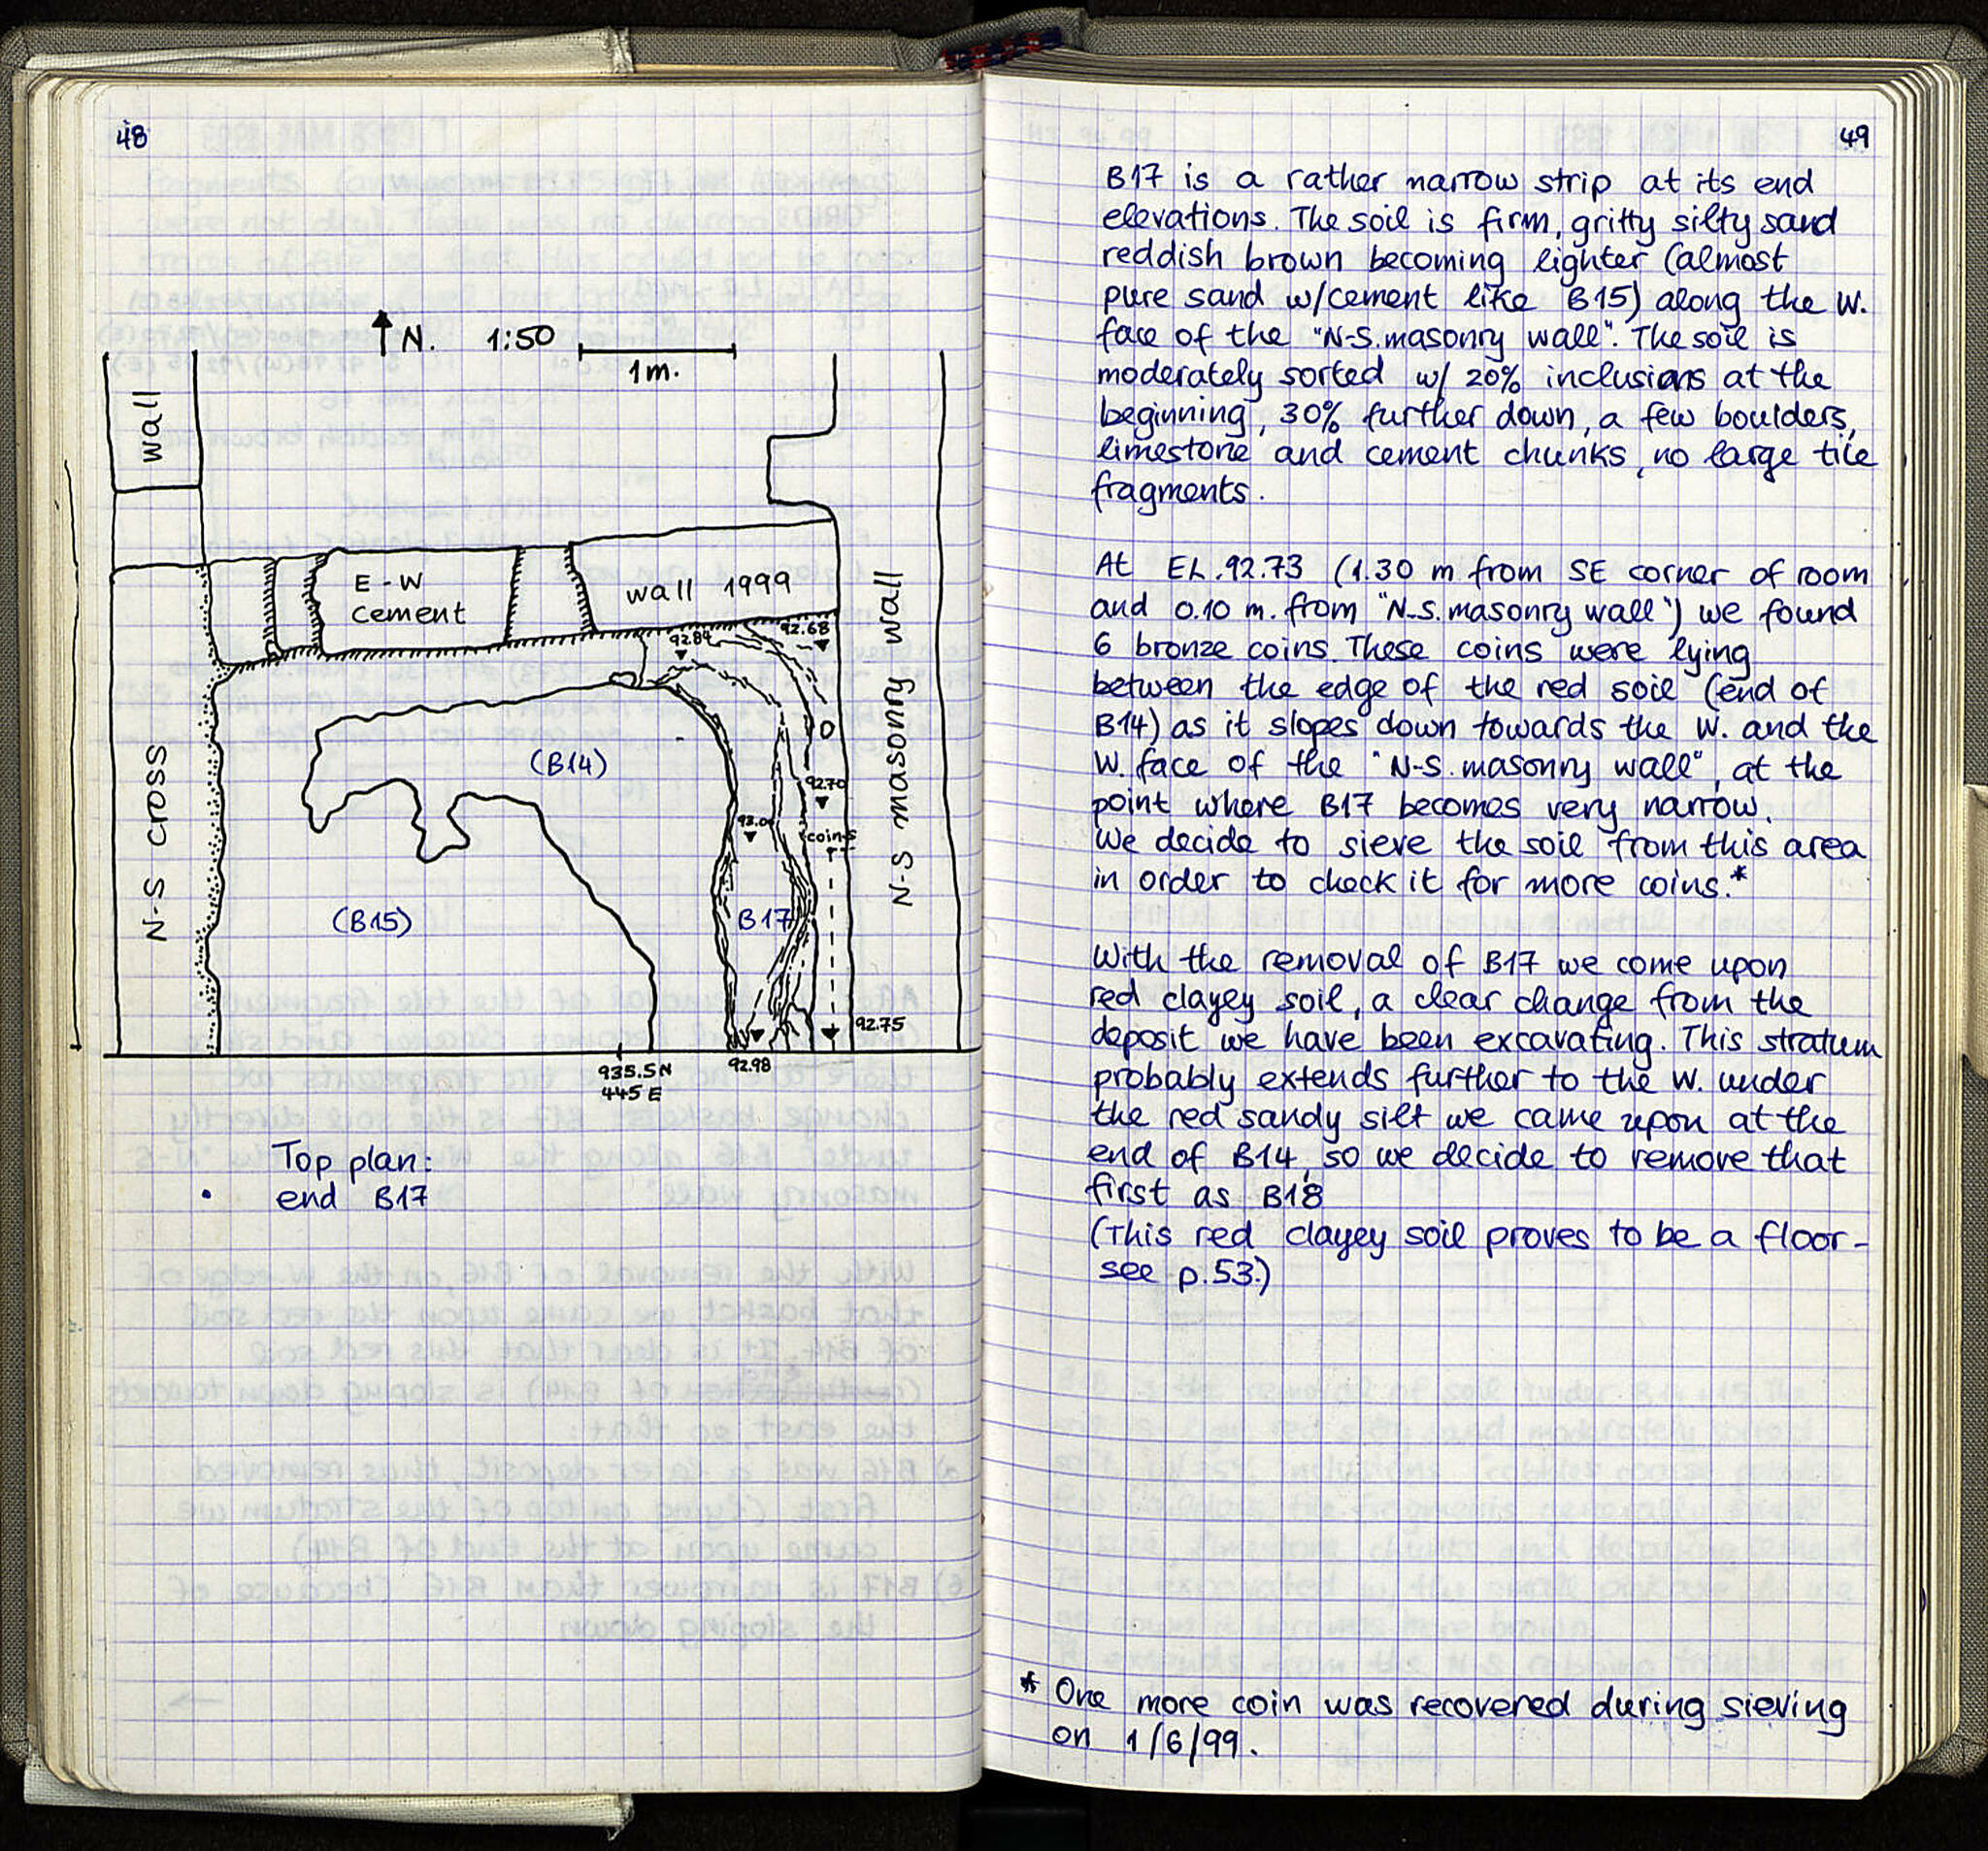 48
N. 1:50
1m.
wall
E-W
cement
wall 1999
92.84
92.68
N-S masonry wall
N-S cross
(B14)
92.70
coins
(B15)
B17
92.75
92.98
935.5N
445 E
Top plan:
end B17
49
B17 is a rather narrow strip at its end
elevations. The soil is firm, gritty silty sand
reddish brown becoming lighter (almost
pure sand w/cement like B15) along the W.
face of the "N-S. masonry wall". The soil is
moderately sorted w/ 20% inclusions at the
beginning, 30% further down, a few boulders,
limestone and cement chunks, no large tile
fragments.
At EL. 92.73 (1.30 m from SE corner of room
and 0.10 m. from "N-S. masonry wall") we found
6 bronze coins. These coins were lying
between the edge of the red soil (end of
B14) as it slopes down towards the W. and the
W. face of the "N-S. masonry wall", at the
point where B17 becomes very narrow.
We decide to sieve the soil from this area
in order to check it for more coins.*
With the removal of B17 we come upon
red clayey soil, a clear change from the
deposit we have been excavating. This stratum
probably extends further to the W. under
the red sandy silt we came upon at the
end of B14, so we decide to remove that
first as B18
(This red clayey soil proves to be a floor-
see p.53.)
* One more coin was recovered during sieving
on 1/6/99.